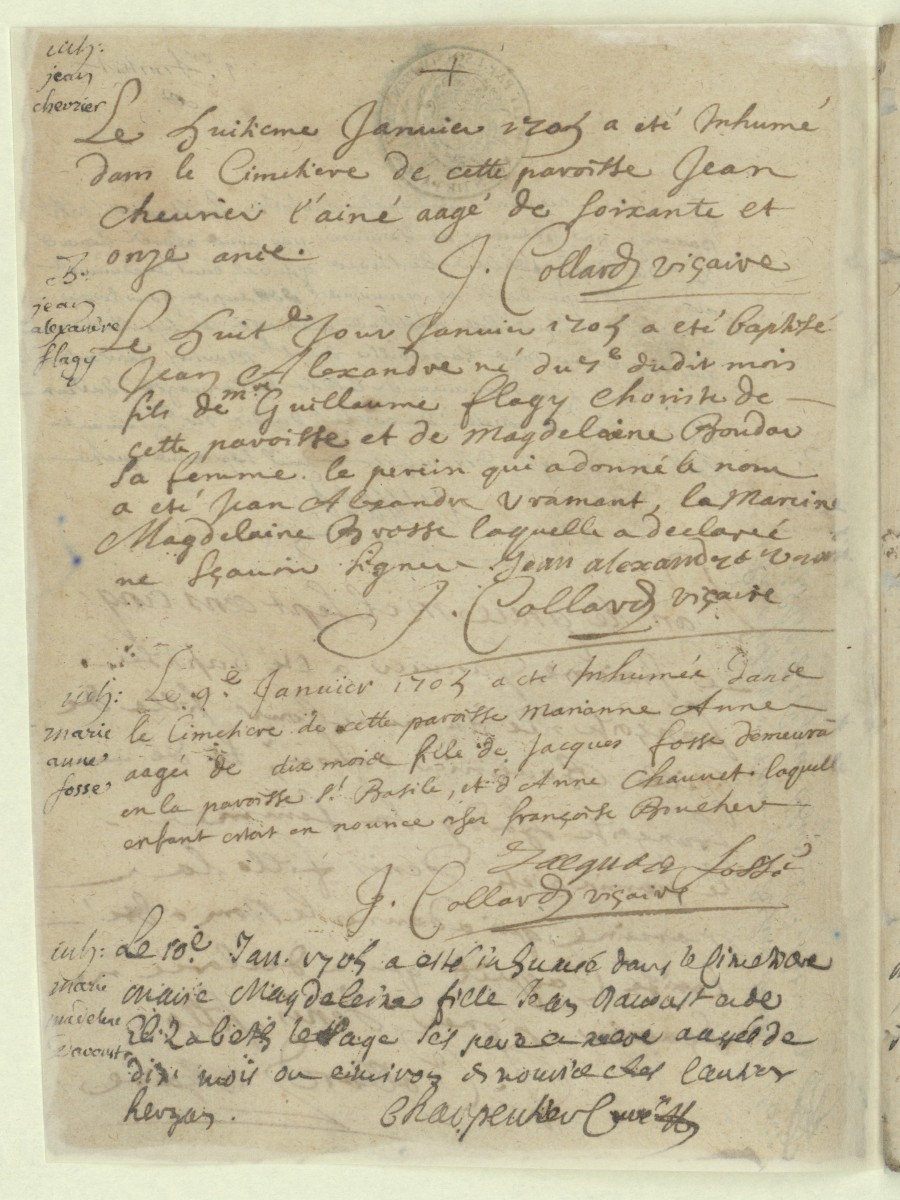 inh:
jean
chevrier
Le huitieme Janvier 1705 a eté Inhumé
dans le Cimetiere de cette paroisse Jean
Cheurier l'ainé aagé de soixante et
onze ans.
J. Collard viçaire
B.
jean
alexandre
flagy
Le huit.e Jour Janvier 1705 a eté baptisé
Jean Alexandre né du 7e dudit mois
fils de m.re Guillaume flagy Choriste de
cette paroisse et de Magdelaine Boudor
sa femme. le perein qui a donné le nom
a eté Jean Alexandre Vramant, la Mareine
Magdelaine Brosse laquelle a declareé
ne sçauoir signer Jean alexandre
J. Collard viçaire
inh:
marie
anne
fosse
Le 9.e Janvier 1705 a eté Inhumée dans
le Cimetiere de cette paroisse Marianne Anne
aageé de dix mois fille de Jacques fosse demeurā
en la paroisse St. Basile, et d'Anne Chauuet laquelle
enfant estoit en nourice françoise Brucher
Jacques fossé
J. Collard viçaire
inh:
marie
madelene
ravaust
Le 10.e Jan. 1705 a esté inhumée dans le Cimetiere
marie Magdeleine fille Jean Rauaust et de
Elizabeth lesage ses pere et mere aageé de
dix mois ou environ en nourice ches
Charpentier Curé